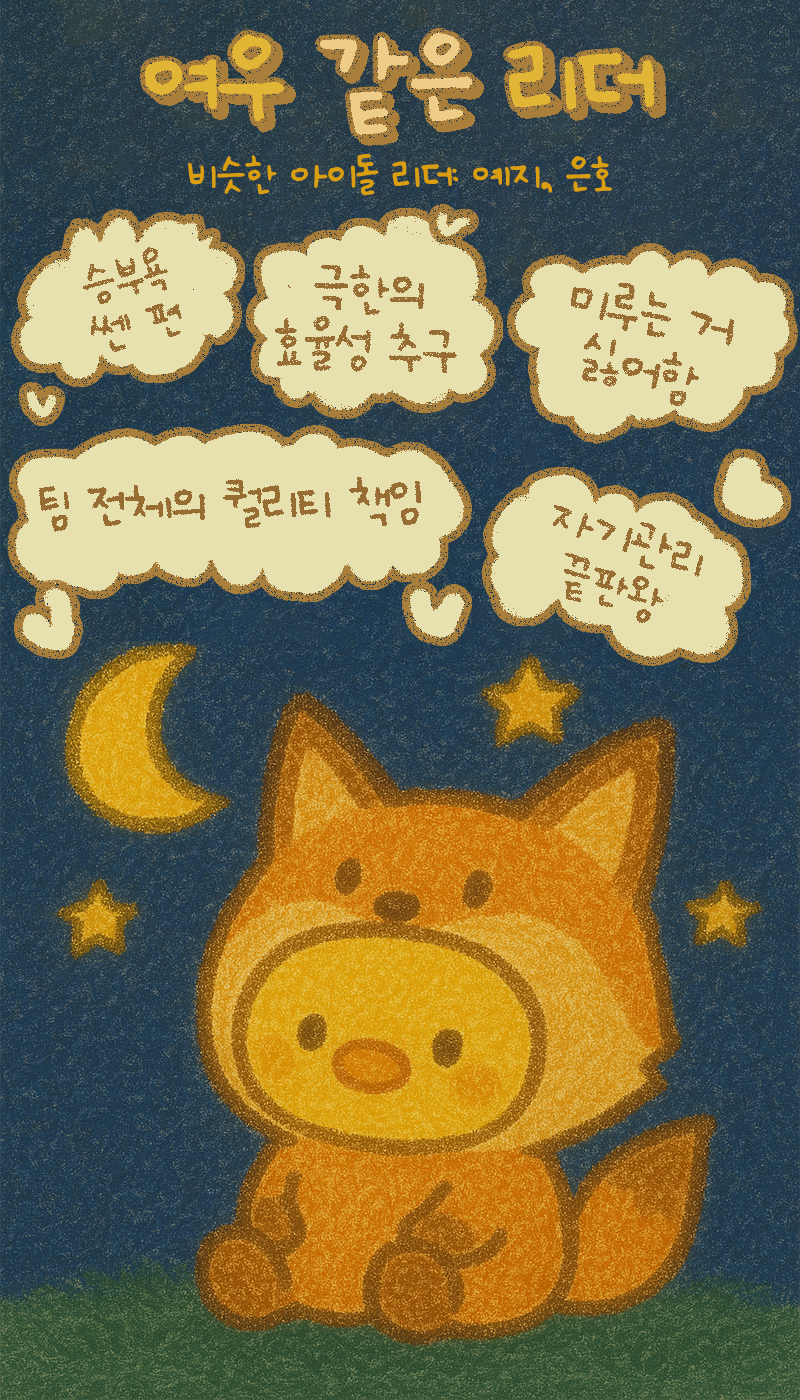 여우 같은 리더
비슷한 아이돌 리더: 예지, 은호
승부욕
쎈 편
극한의
효율성 추구
미루는 거
싫어함
팀 전체의 퀄리티 책임
자기관리
끝판왕